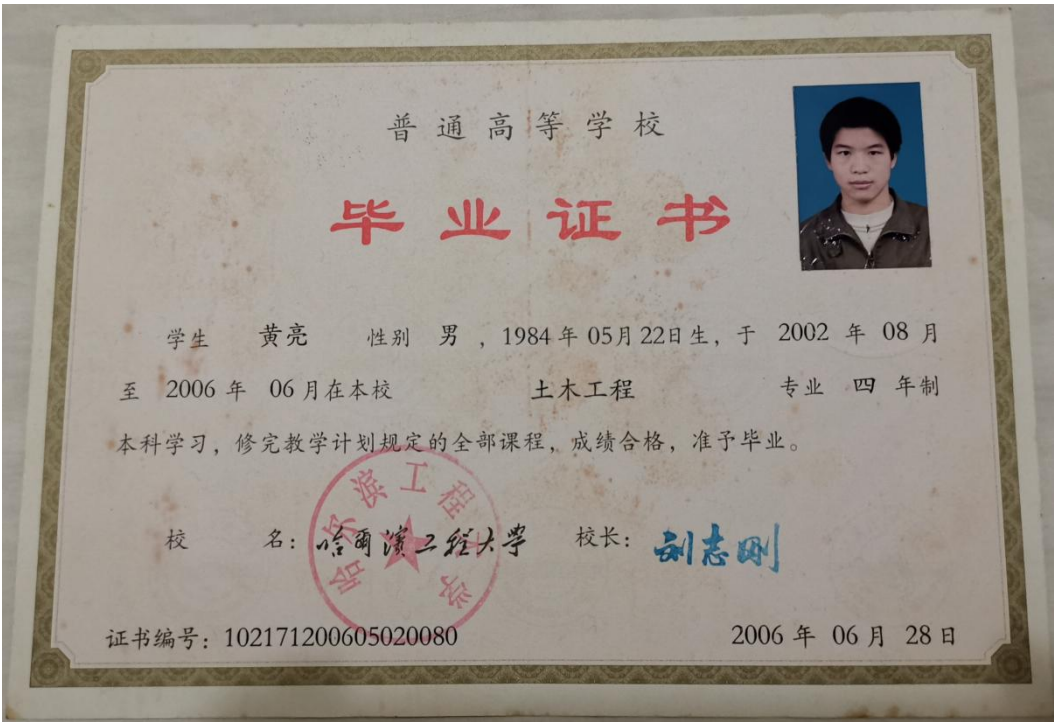 普通高等学校
毕业证书
学生 黄亮 性别 男 ，1984 年 05月 22日生，于 2002 年 08 月
至 2006 年 06 月在本校 土木工程 专业 四 年制
本科学习，修完教学计划规定的全部课程，成绩合格，准予毕业。
校 名：哈尔滨工程大学 校长：刘志刚
哈尔滨工程大学
证书编号：102171200605020080 2006 年 06 月 28 日